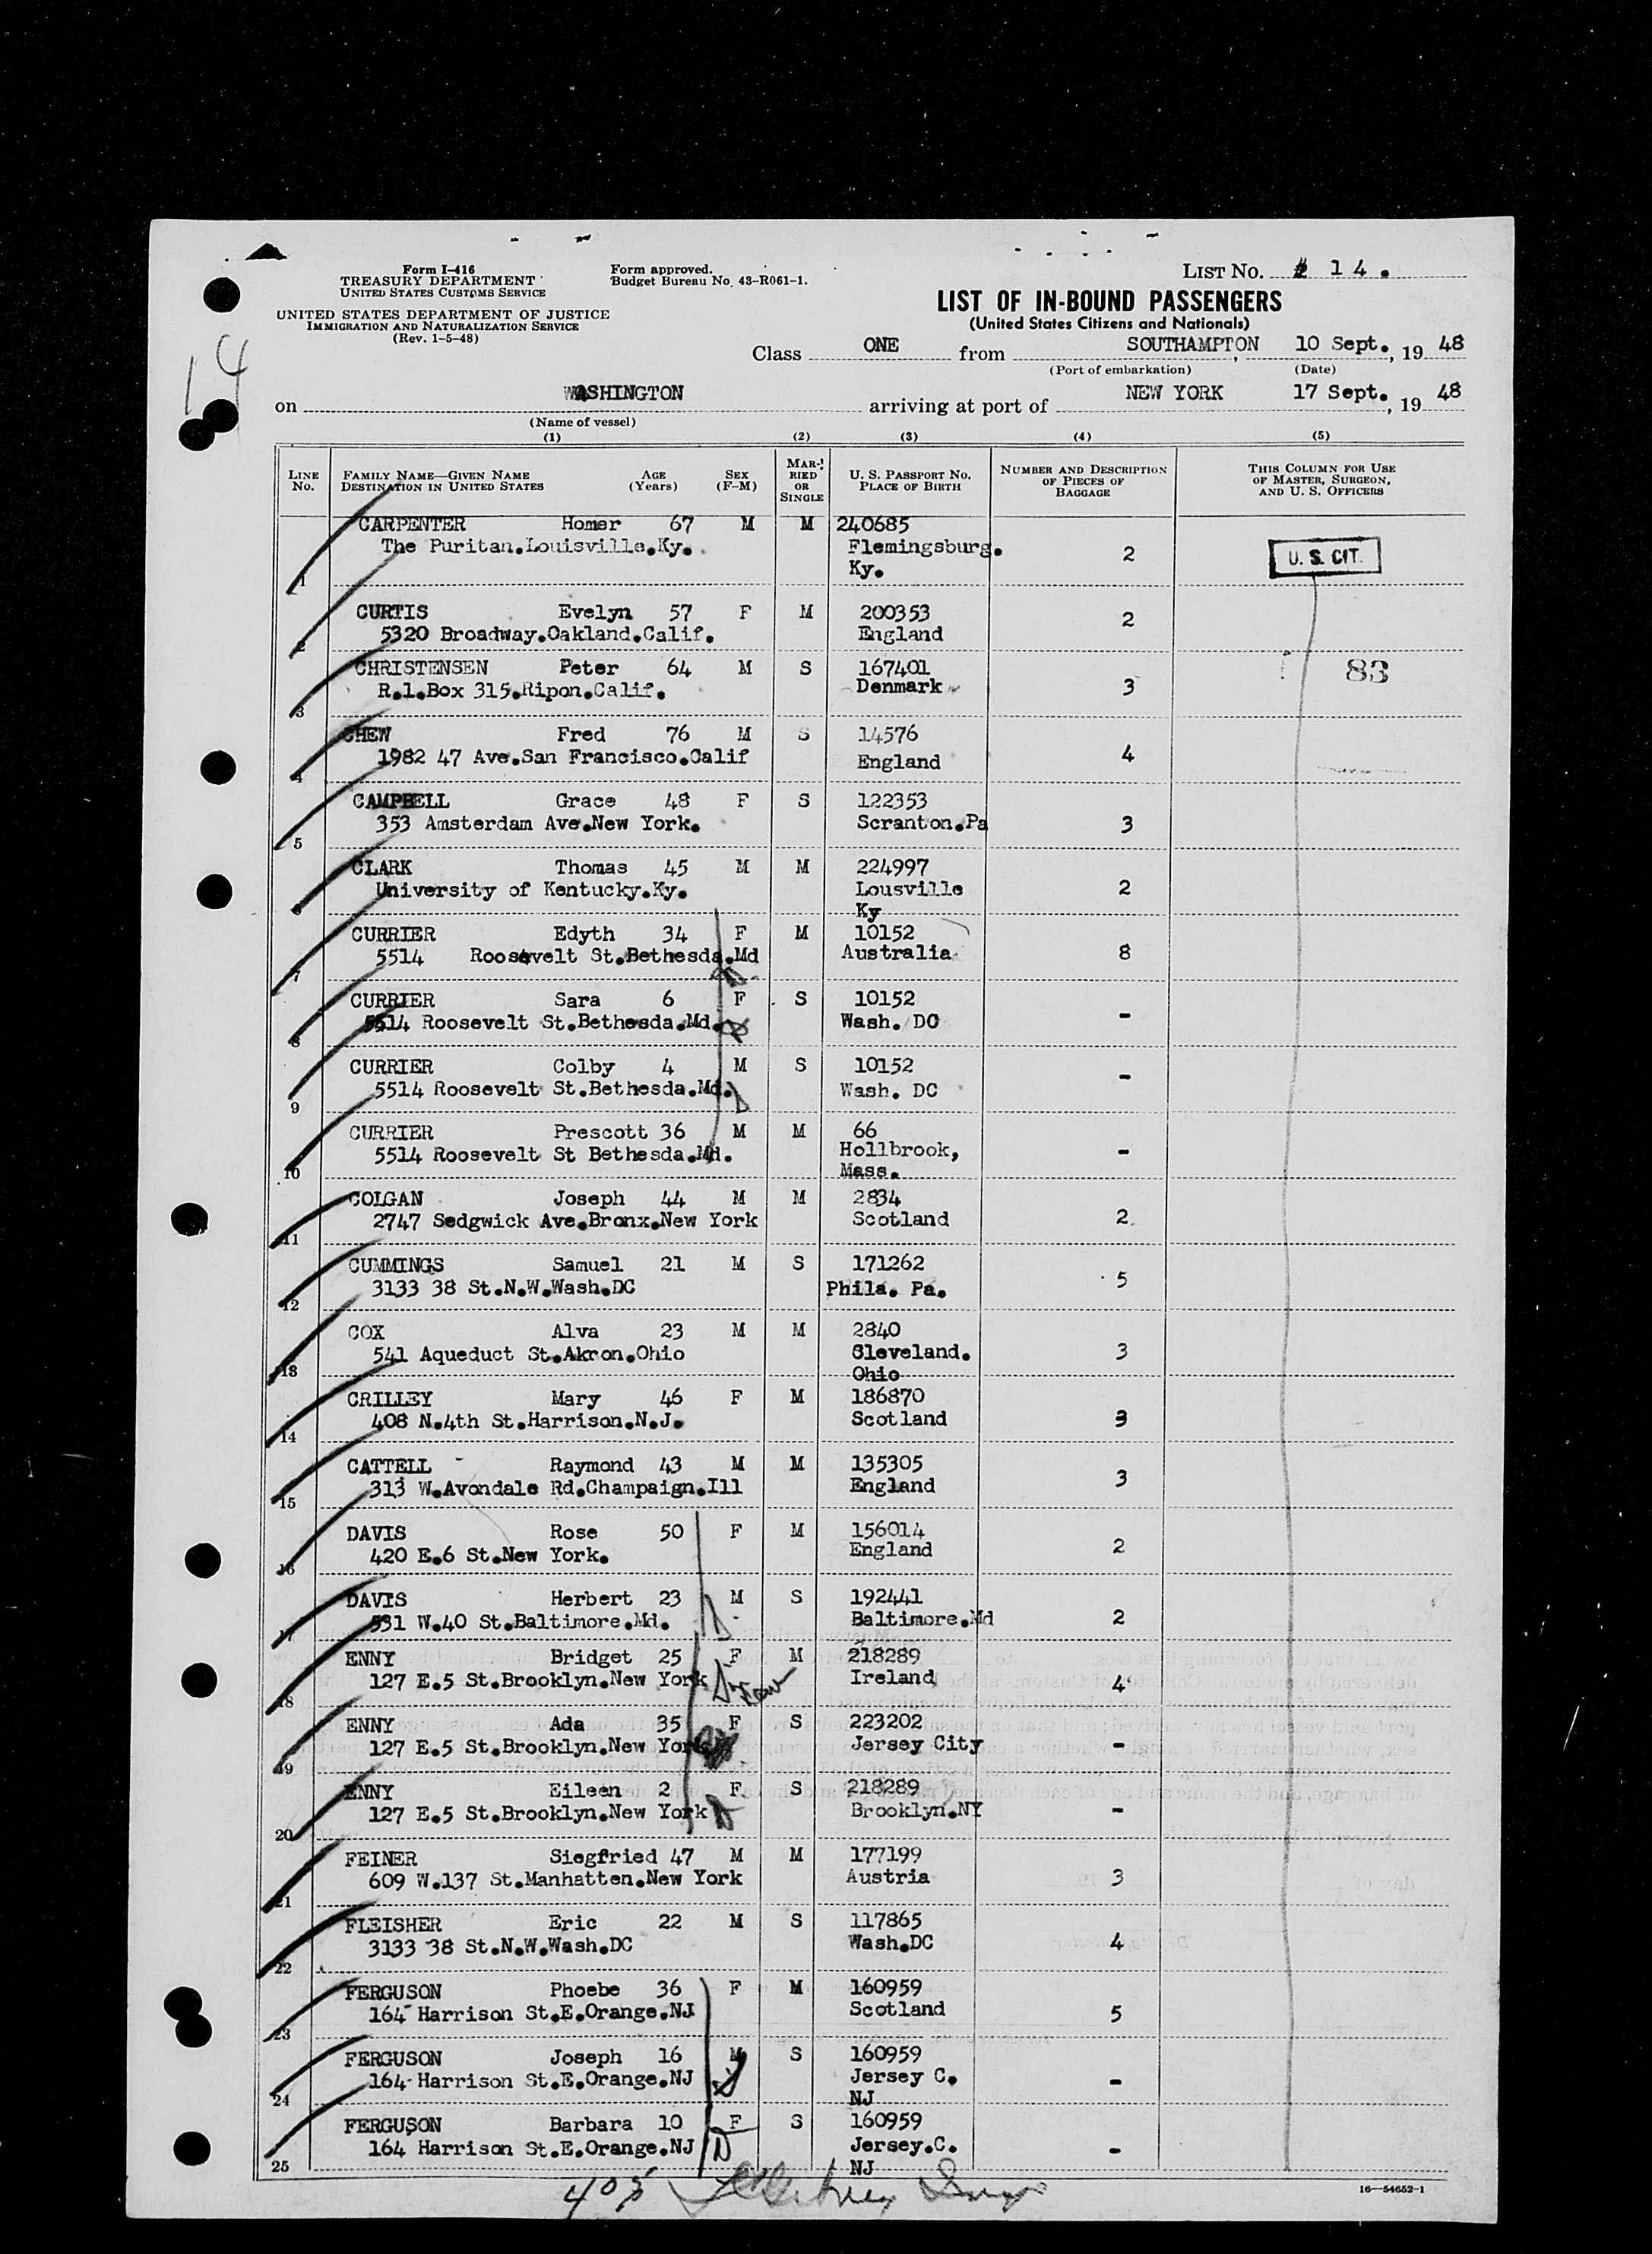 Form I-416
TREASURY DEPARTMENT
UNITED STATES CUSTOMS SERVICE
UNITED STATES DEPARTMENT OF JUSTICE
IMMIGRATION AND NATURALIZATION SERVICE
(Rev. 1-5-48)
Form approved.
Budget Bureau No. 43-R061-1.
LIST NO. # 14.
14
LIST OF IN-BOUND PASSENGERS
(United States Citizens and Nationals)
Class ONE from SOUTHAMPTON, 10 Sept., 19 48
(Port of embarkation) (Date)
on WASHINGTON arriving at port of NEW YORK 17 Sept., 19 48
(Name of vessel)
(1) (2) (3) (4) (5)
LINE No. FAMILY NAME—GIVEN NAME DESTINATION IN UNITED STATES AGE (Years) SEX (F-M) MARRIED OR SINGLE U. S. PASSPORT NO. PLACE OF BIRTH NUMBER AND DESCRIPTION OF PIECES OF BAGGAGE THIS COLUMN FOR USE OF MASTER, SURGEON, AND U. S. OFFICERS
CARPENTER Homer 67 M M 240685
The Puritan.Louisville.Ky. Flemingsburg. 2 U. S. CIT.
1 Ky.
CURTIS Evelyn 57 F M 200353 2
2 5320 Broadway.Oakland.Calif. England
CHRISTENSEN Peter 64 M S 167401 83
3 R.1.Box 315.Ripon.Calif. Denmark 3
CHEW Fred 76 M S 14576
4 1982 47 Ave.San Francisco.Calif England 4
CAMPBELL Grace 48 F S 122353
5 353 Amsterdam Ave.New York. Scranton.Pa 3
CLARK Thomas 45 M M 224997
University of Kentucky.Ky. Lousville 2
6 Ky
CURRIER Edyth 34 F M 10152
7 5514 Roosevelt St.Bethesda.Md Australia 8
CURRIER Sara 6 F S 10152
8 5514 Roosevelt St.Bethesda.Md. Wash. DC -
CURRIER Colby 4 M S 10152
9 5514 Roosevelt St.Bethesda.Md. Wash. DC -
CURRIER Prescott 36 M M 66
5514 Roosevelt St Bethesda.Md. Hollbrook, -
10 Mass.
COLGAN Joseph 44 M M 2834
11 2747 Sedgwick Ave.Bronx.New York Scotland 2
CUMMINGS Samuel 21 M S 171262
12 3133 38 St.N.W.Wash.DC Phila. Pa. 5
COX Alva 23 M M 2840
541 Aqueduct St.Akron.Ohio Cleveland. 3
13 Ohio
CRILLEY Mary 46 F M 186870
14 408 N.4th St.Harrison.N.J. Scotland 3
CATTELL Raymond 43 M M 135305
15 313 W.Avondale Rd.Champaign.Ill England 3
DAVIS Rose 50 F M 156014
16 420 E.6 St.New York. England 2
DAVIS Herbert 23 M S 192441
17 531 W.40 St.Baltimore.Md. Baltimore.Md 2
ENNY Bridget 25 F M 218289
18 127 E.5 St.Brooklyn.New York Ireland 4
ENNY Ada 35 F S 223202
19 127 E.5 St.Brooklyn.New York Jersey City -
ENNY Eileen 2 F. S 218289
20 127 E.5 St.Brooklyn.New York Brooklyn.NY -
FEINER Siegfried 47 M M 177199
21 609 W.137 St.Manhatten.New York Austria 3
FLEISHER Eric 22 M S 117865
22 3133 38 St.N.W.Wash.DC Wash.DC 4
FERGUSON Phoebe 36 F M 160959
23 164 Harrison St.E.Orange.NJ Scotland 5
FERGUSON Joseph 16 M S 160959
164 Harrison St.E.Orange.NJ Jersey C. -
24 NJ
FERGUSON Barbara 10 F S 160959
164 Harrison St.E.Orange.NJ Jersey.C. -
25 NJ
16—54652-1